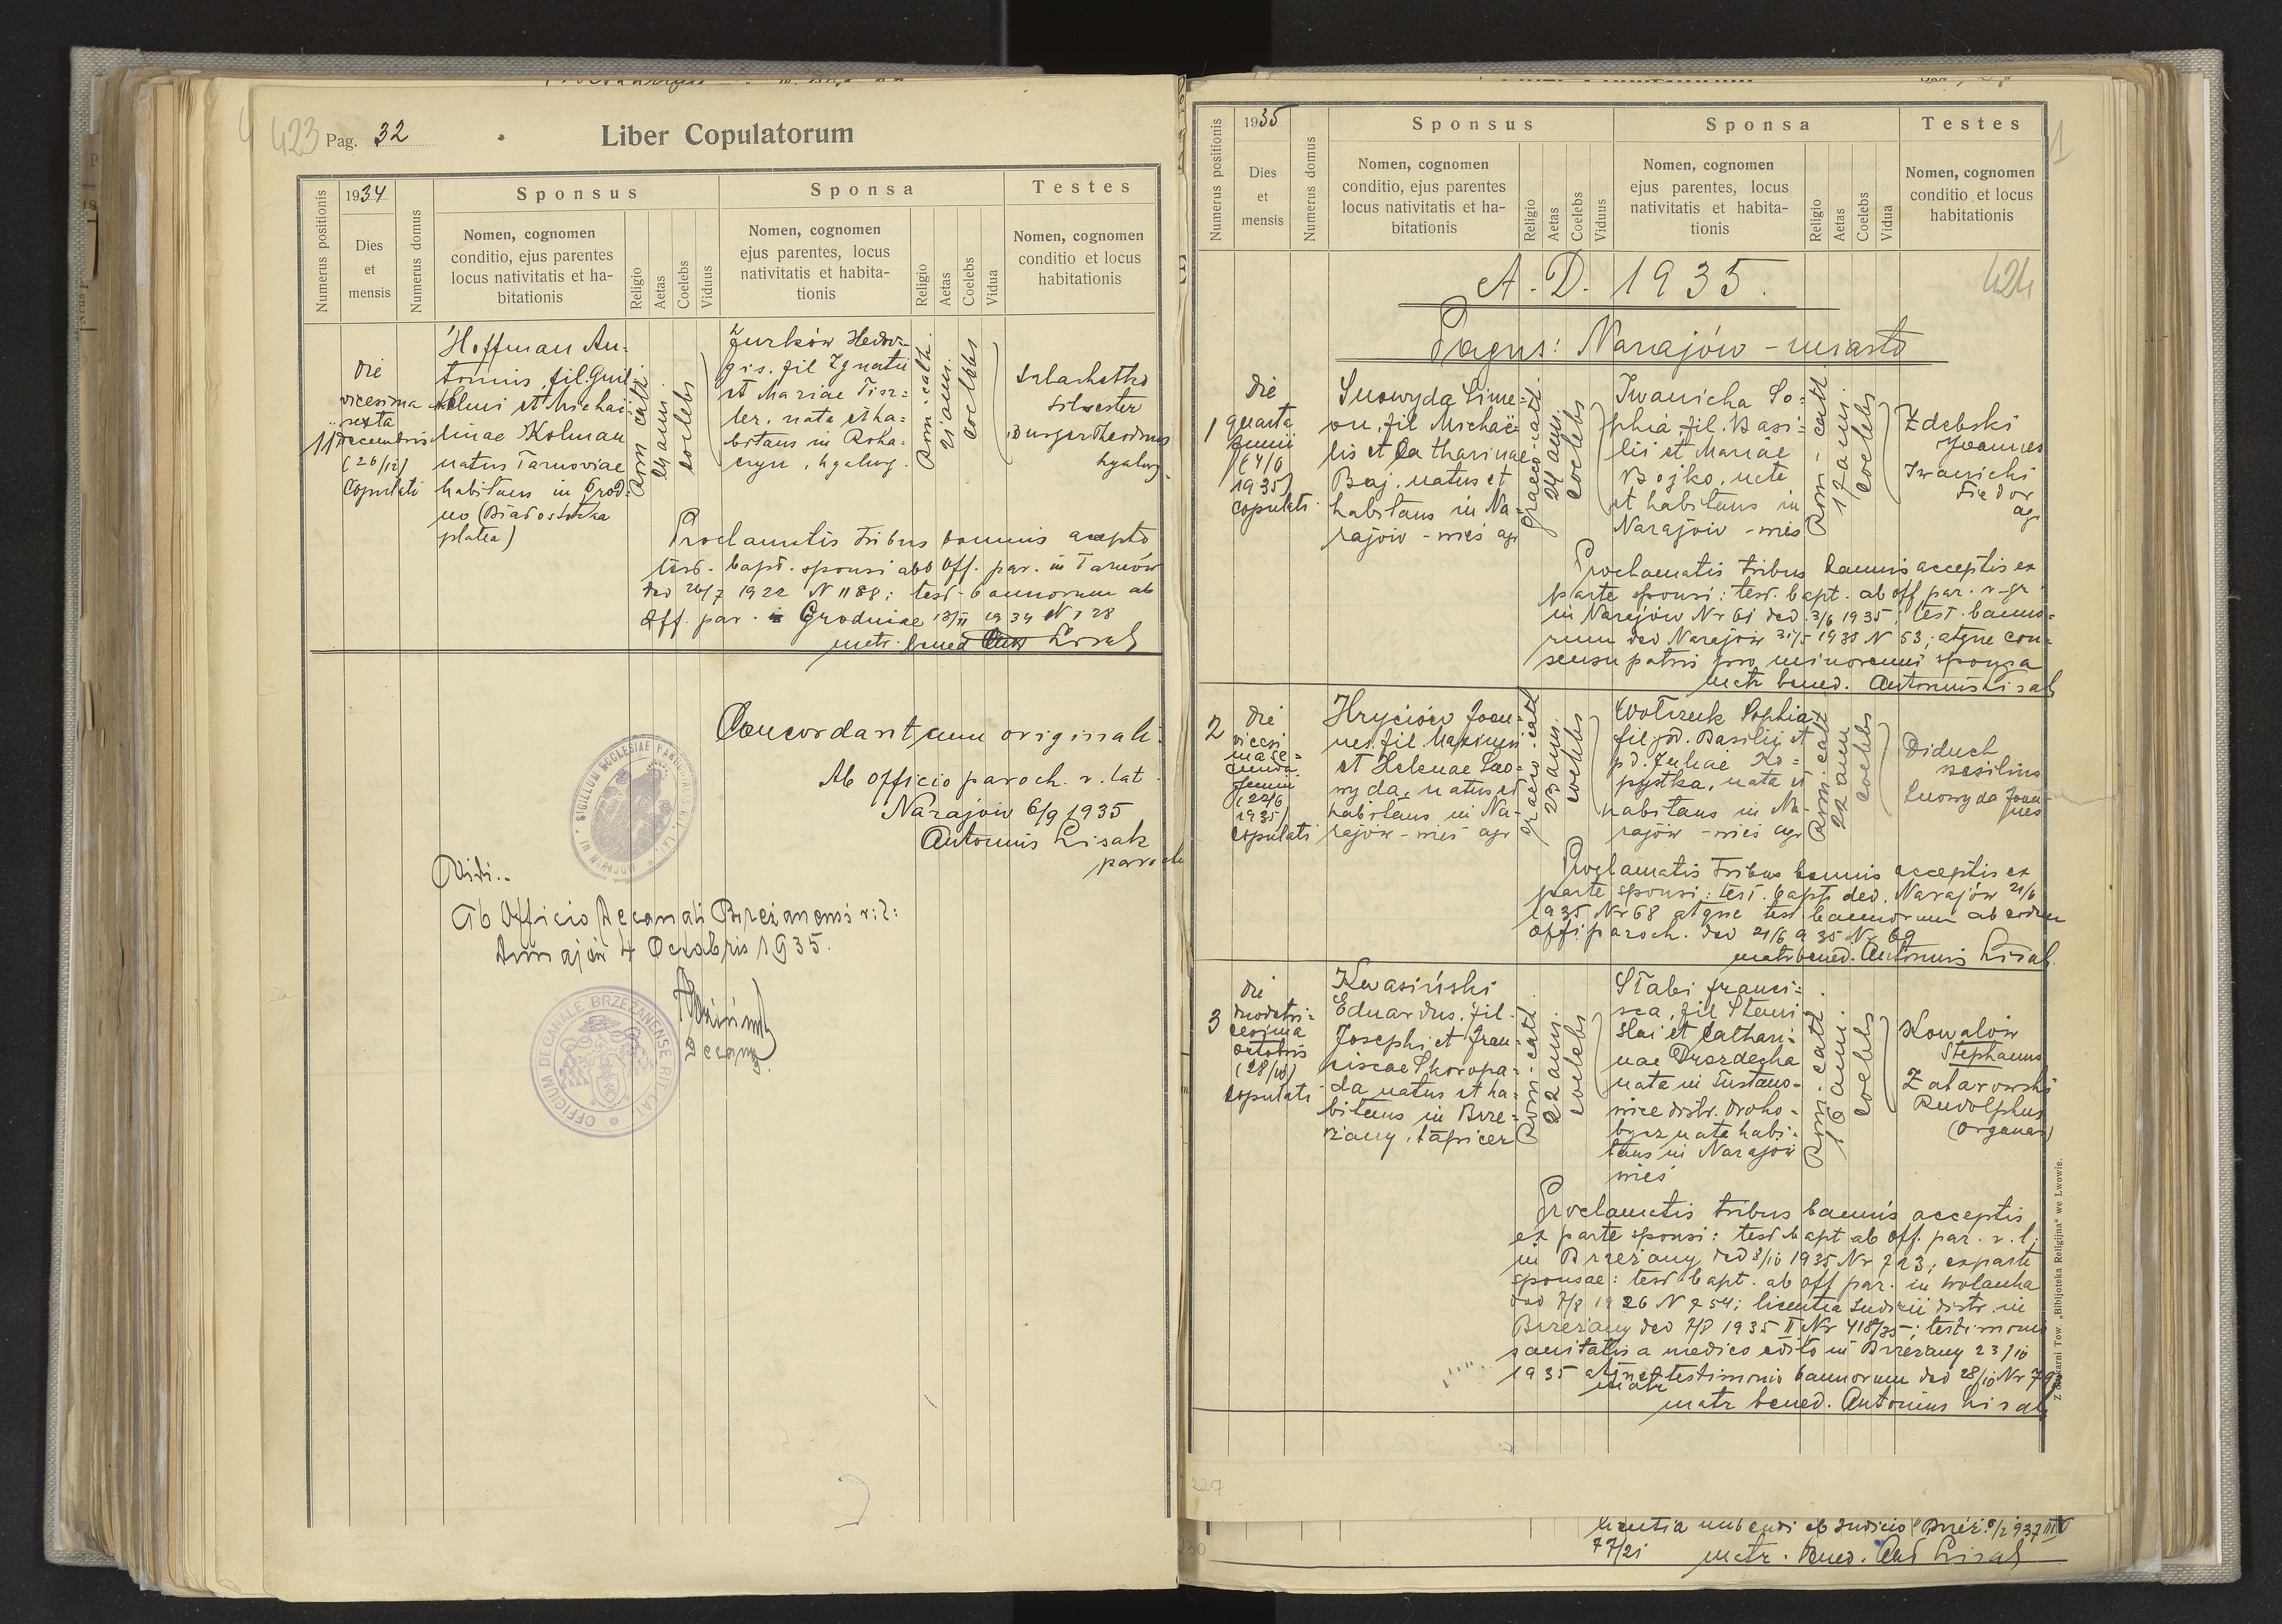 423 Pag. 32
Liber Copulatorum
Numerus positionis
1934
Dies
et
mensis
Numerus domus
Sponsus
Nomen, cognomen
conditio, ejus parentes
locus nativitatis et ha-
bitationis
Religio
Aetas
Coelebs
Viduus
Sponsa
Nomen, cognomen
ejus parentes, locus
nativitatis et habita-
tionis
Religio
Aetas
Coelebs
Vidua
Testes
Nomen, cognomen
conditio et locus
habitationis
11
die
vicesima
sexta
decembris
(26/12)
copulati
Hoffman An-
tonius, fil. Guil-
helmi et Michaë-
linae Kolman
natus Tarnoviae
habitans in Grod-
no (Białostocka
platea)
Rom cath
24 ann.
coelebs
Żurków Hedvi-
gis. fil Ignatii
et Mariae Tisz-
ler, nata et ha-
bitans in Roha-
tyn,
Rom. cath.
21 ann.
coelebs
Silvester
Burger Theodorus
Proclamatis tribus bannis acepto
test. bapt. sponsi abb Off. par. in Tarnów
ddo 26/7 1922 N 1188; test. bannorum ab
Off. par. Grodniae 13/XI 1934 N 728
matr. bened Lisak
Concordant cum originali:
Ab officio paroch. r. lat.
Narajów 6/9 1935
Antonius Lisak
paroch
Vidi:.
Ab Officio Decanali Brzeżanensi r: l:
4 Octobris 1935.
OFFICIUM DECANALE BRZEZANENSE RIT. LAT.
Numerus positionis
1935
Dies
et
mensis
Numerus domus
Sponsus
Nomen, cognomen
conditio, ejus parentes
locus nativitatis et ha-
bitationis
Religio
Aetas
Coelebs
Viduus
Sponsa
Nomen, cognomen
ejus parentes, locus
nativitatis et habita-
tionis
Religio
Aetas
Coelebs
Vidua
Testes
Nomen, cognomen
conditio et locus
habitationis
A. D. 1935.
424
Pagus: Narajów - miasto
1
die
quarta
Junii
(4/6
1935)
copulati
Snowyda Sime-
on, fil Michaë-
lis et Catharinae
Baj. natus et
habitans in Na-
rajów - wieś agr
graeco-cath.
24 ann.
coelebs
Iwanicka So-
phia, fil. Basi-
lii et Mariae
Bojko, nata
et habitans in
Narajów - wieś
Rom - cath.
17 ann.
coelebs
Zdebski
Joannes
Iwanicki
Fiedor
agr
Proclamatis tribus bannis acceptis ex
parte sponsi: test. bapt. ab off par. r. gr
in Narajów Nr 61 ddo. 3/6 1935; test. banno-
rum ddo Narajów 31/5 1935 N 53; atque con-
sensu patris pro minorenni sponsa
matr bened. Antonius Lisak
2
die
vicesi
ma se-
cunda
Junii
(22/6
1935)
copulati
Hryciów Joan-
nes. fil. Maximi
et Helenae Sno-
wyda, natus et
habitans in Na-
rajów - wieś agr
graeco-cath
23 ann.
coelebs
Wołczuk Sophia
fil pd. Basilii et
pd. Juliae Ko-
pystka, nata et
habitans in Na-
rajów - wieś agr
Rom-cath
22 ann
coelebs
Diduch
Basilius
Snowyda Joan-
nes
Proclamatis tribus bannis acceptis ex
parte sponsi: test. bapt. ddo. Narajów 21/6
1935 Nr 68 atque test. bannorum ab eodem
offi paroch. ddo 21/6 935 Nr 69
matr bened. Antonius Lisak.
3
die
duodetri-
cesima
octobris
(28/10)
copulati
Kwasiński
Eduardus. fil.
Josephi et Fran-
ciscae Skoropa-
da natus et ha-
bitans in Brze-
żany, tapicer
Rom. cath
22 ann.
coelebs
Stabi Franci-
sca, fil Stani-
slai et Cathari-
nae
nata in Tustano-
wice distr. Droho-
bycz nata habi-
tans in Narajów
wieś
Rom. cath
16 ann.
coelebs
Kowalów
Stephanus
Rudolphus
(organar)
Proclamatis tribus bannis acceptis
ex parte sponsi: test. bapt ab off. par. r. l.
in Brzeżany ddo 8/10 1935 Nr 723; ex parte
sponsae: test bapt. ab off par. in Wolanka
ddo 7/8 1926 N 754; licentia Judicii distr. in
Brzeżany ddo 7/8 1935 II Nr 418/35; testimonio
sanitatis a medico edito in Brzeżany 23/10
1935 atque testimonio bannorum ddo 28/10 Nr 79
matr bened. Antonius Lisak
Z drukarni Tow. „Bibljoteka Religijna" we Lwowie.
licentia nubendi ab Judicio Brzeż.
77/21 matr. Bened. Ant Lisak